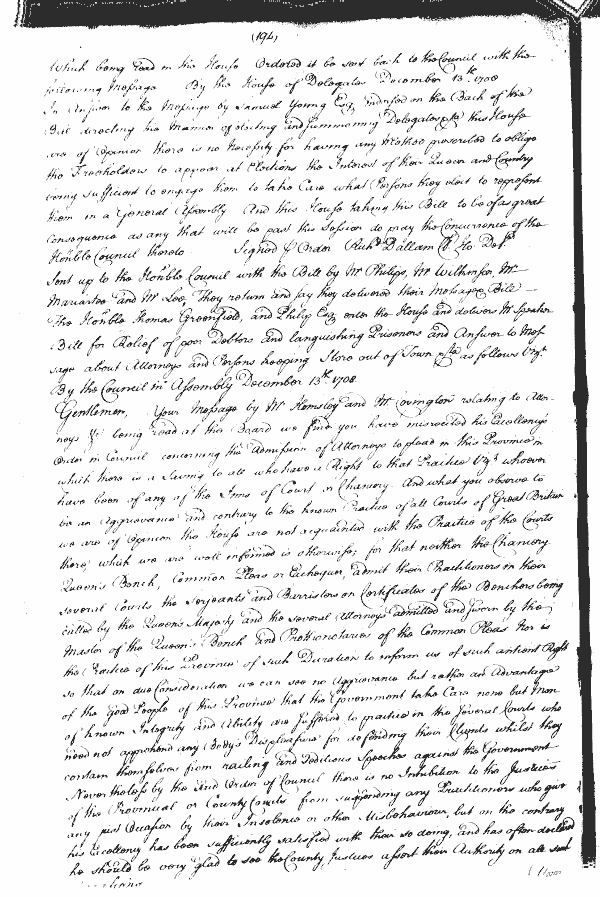 (194)
Which being read in the House Ordered it be sent back to the Council with the
following Message By the House of Delegates December 13th. 1708
In Answer to the Message by Samuel Young Esqr. indorsed on the Back of the
Bill directing the Manner of electing and summoning Delegates &ca this House
are of Opinion there is no Necessity for having any Method prescribed to oblige
the Freeholders to appear at Elections the Interest of their Queen and Country
being sufficient to engage them to take Care what Persons they elect to represent
them in a General Assembly And this House taking this Bill to be of as great
consequence as any that will be past this Session do pray the Concurrence of the
Honble Council thereto Signed p Order Richd Dallam Cl Ho. Del.
Sent up to the Honble Council with the Bill by Mr Philips, Mr Wilkinson, Mr
Macartee and Mr Lee, They return and say they delivered their Message & Bill
The Honble Thomas Greenfield, and Philip Esqrs enter the House and delivers Mr Speaker
Bill for Relief of poor Debtors and languishing Prisoners and Answer to Mes
sage about Attorneys and Persons keeping Store out of Town &ca as follows Vizt.
By the Council in Assembly December 13th. 1708.
Gentlemen, Your Message by Mr Hemsley and Mr Covington relating to Attor-
neys &c being read at this Board we find you have misrecited his Excellencys
Order in Council concerning the Admission of Attorneys to plead in this Province in
which there is a Saving to all who have a Right to that Practice Vizt whoever
have been of any of the Inns of Court or Chancery. And what you observe to
be an Aggrievance and contrary to the known Practice of all Courts of Great Britain
we are of Opinion the House are not acquainted with the Practice of the Courts
there, which we are well informed is otherwise; for that neither the Chancery
Queen's Bench, Common Pleas or Exchequer, admit their Practitioners in their
several Courts the Serjeants and Barristers on Certificates of the Benchers being
called by the Queen's Majesty and the several Attorneys admitted and sworn by the
Master of the Queen's Bench and Prothonotaries of the Common Pleas Nor is
the Practice of this Province of such Duration to inform us of such antient Right
so that on due Consideration we can see no Aggrievance but rather an Advantage
of the Good People of this Province that the Government take Care none but Men
of known Integrity and Ability are suffered to practice in the several Courts who
need not apprehend any Body's Displeasure for defending their Clyents whilst they
contain themselves from railing and Seditious Speeches against the Government
Nevertheless by the said Order of Council there is no Inhibition to the Justices
of the Provincial or County Courts from suspending any Practitioners who give
any just Occasion by their Insolence or other Misbehaviour, but on the contrary
his Excellency has been sufficiently satisfied with their so doing, and has often declared
he should be very glad to see the County Justices assert their Authority on all such